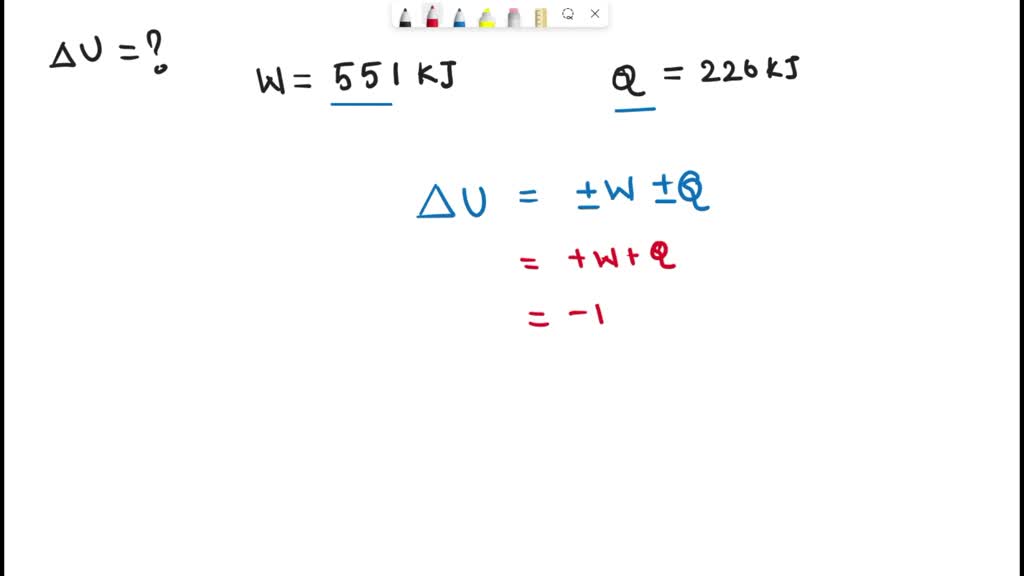 ΔU = ?
W = 551 KJ
Q = 226 KJ
ΔU = ±W ±Q
= +W+Q
= -1